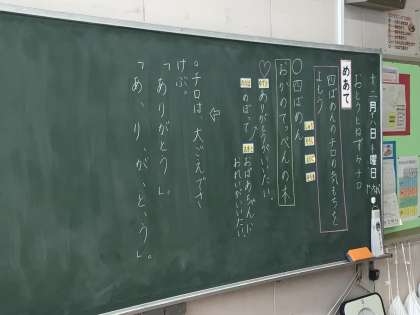 十二月八日 木曜日
おとうとねずみチロ
めあて
四ばめんのチロの気もちを
よもう。
○四ばめん
おかのてっぺんの木
♡ありがとうがいいたい。
のぼって
おばあちゃんに
おれいがいいたい
⇩
。チロは、大ごえでさ
けぶ。
「ありがとう」
「あ、り、が、と、う」。